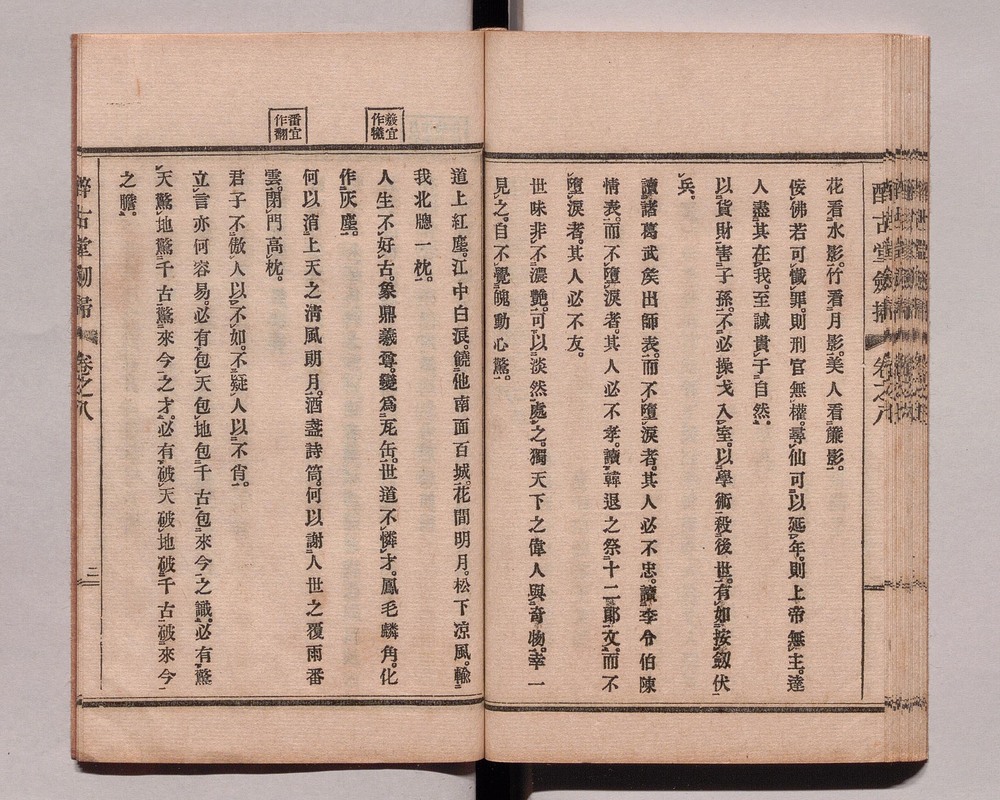 花看水影。竹看月影。美人看簾影。
佞佛若可懺罪。則刑官無權。尋仙可以延年。則上帝無主。達
人盡其在我。至誠貴于自然。
以貨財害子孫。不必操戈入室。以學術殺後世。有如按劔伏
兵。
讀諸葛武矦出師表。而不墮淚者。其人必不忠。讀李令伯陳
情表。而不墮淚者。其人必不孝。讀韓退之祭十二郞文。而不
墮淚者。其人必不友。
世味非不濃艷。可以淡然處之。獨天下之偉人與奇物。幸一
見之。自不覺魄動心驚。
道上紅塵。江中白浪。饒他南面百城。花間明月。松下凉風。輸
我北牕一枕。
人生不好古。象鼎羲尊。變爲瓦缶。世道不憐才。鳳毛麟角。化
作灰塵。
何以消上天之淸風朗月。酒盞詩筒。何以謝人世之覆雨番
雲。閉門高枕。
君子不傲人以不如。不疑人以不肖。
立言亦何容易。必有包天包地包千古包來今之識。必有驚
天驚地驚千古驚來今之才。必有破天破地破千古破來今
之膽。
羲宜
作犧
番宜
作翻
醉古堂劔掃
卷之八
二